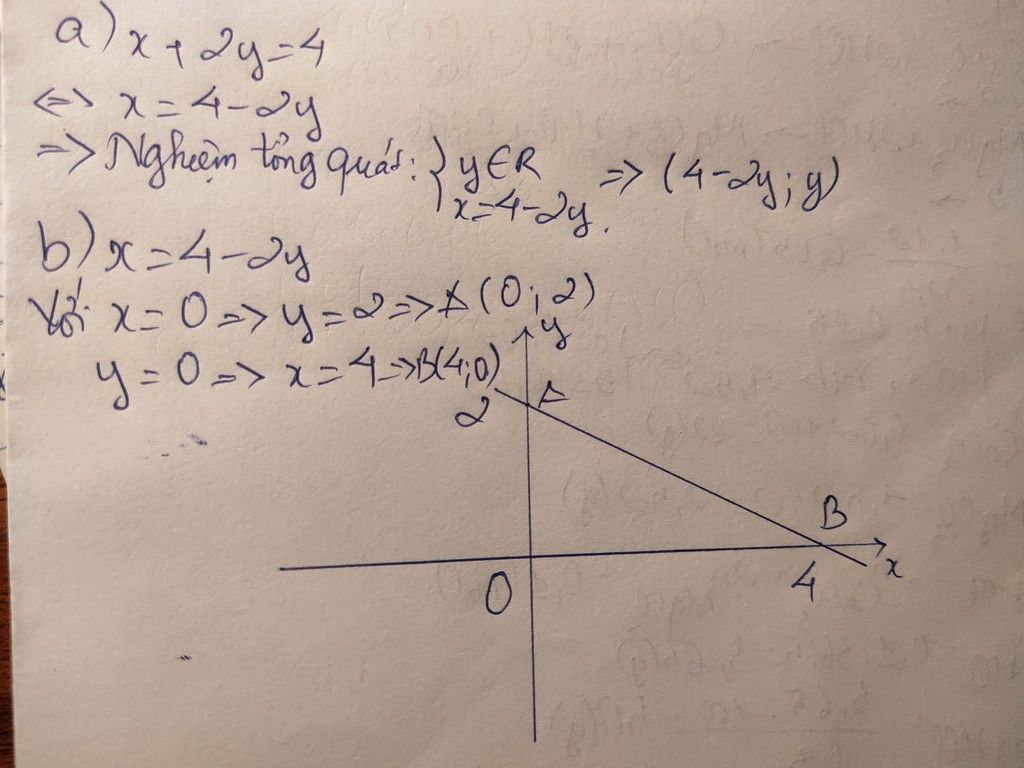 a) x + 2y = 4
<=> x = 4 - 2y
=> Nghiệm tổng quát: { y ∈ R => (4 - 2y; y)
x = 4 - 2y.
b) x = 4 - 2y
Với x = 0 => y = 2 => A (0; 2)
y = 0 => x = 4 => B(4; 0)
y
2 A
B
O 4 x